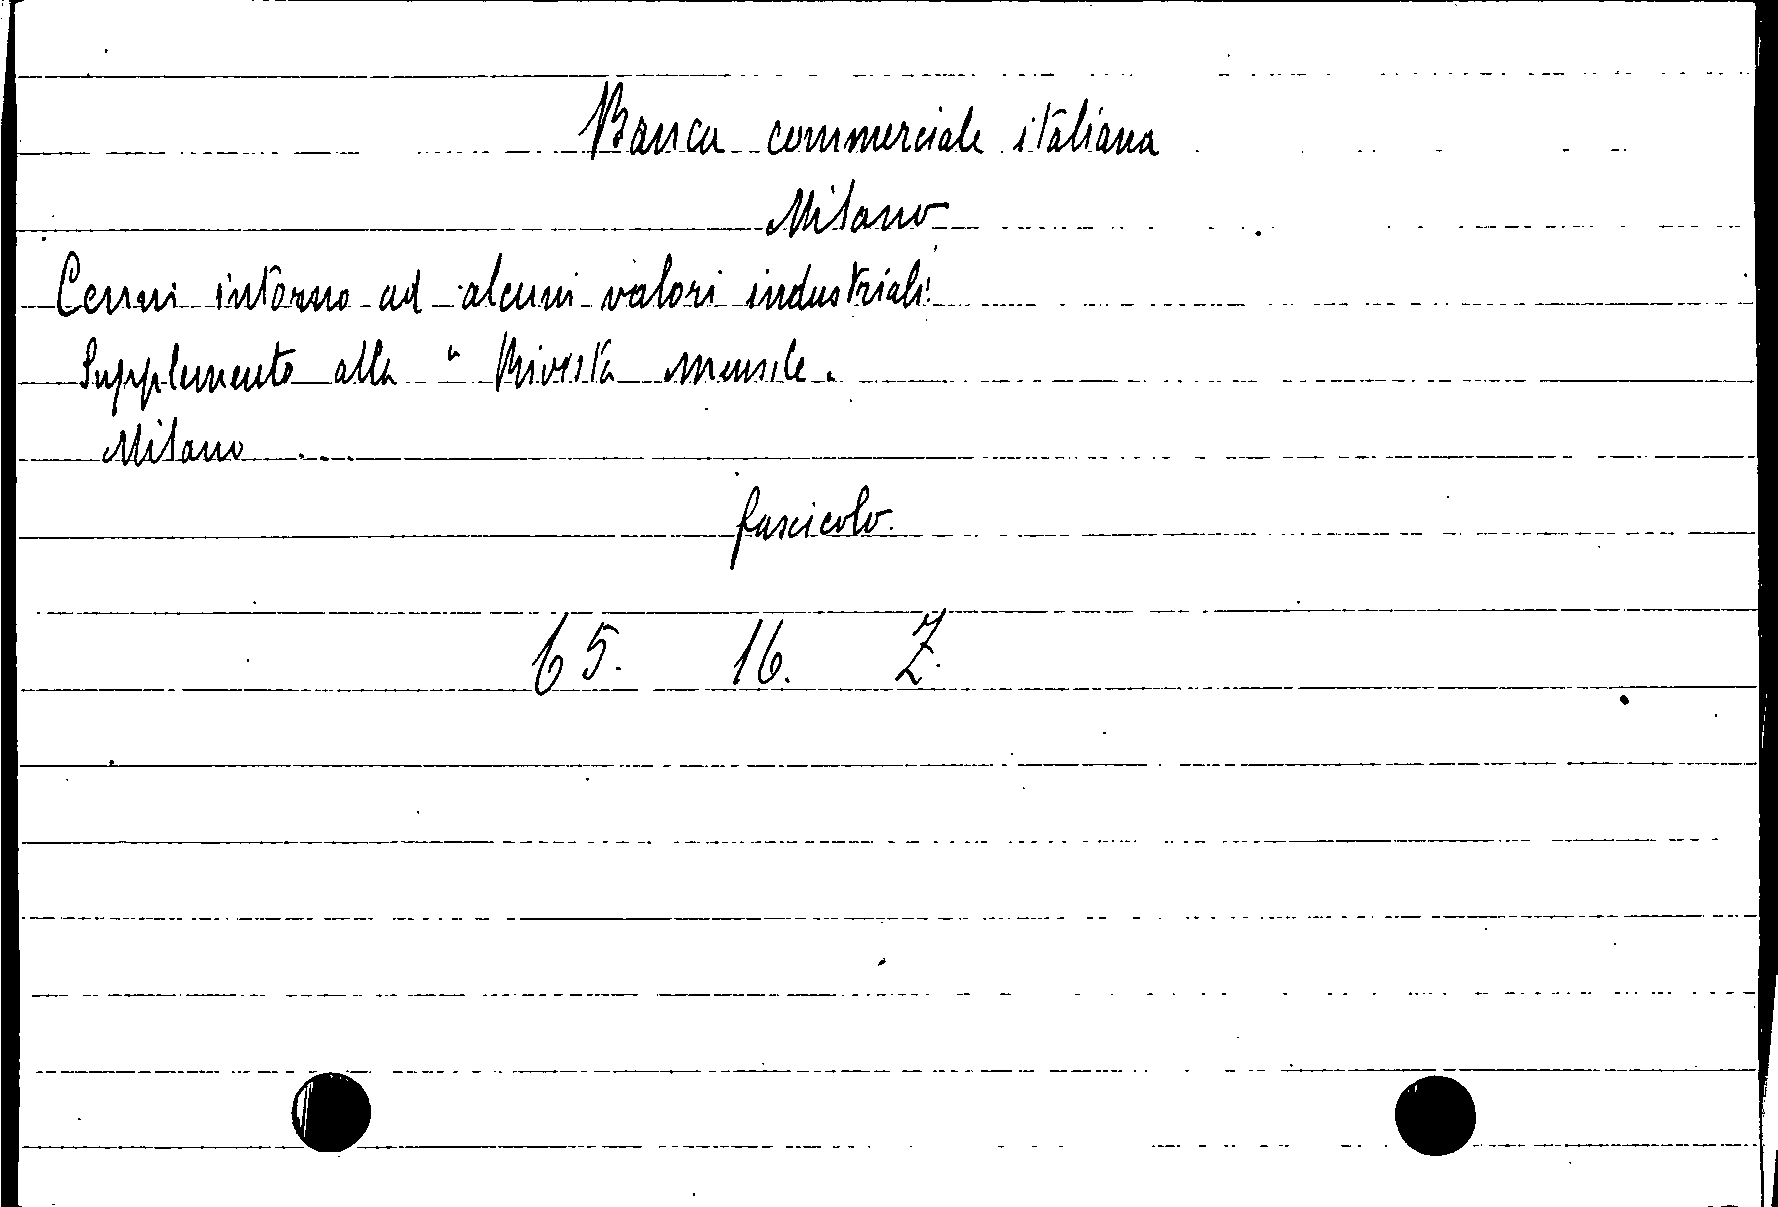 Banca commerciale italiana
Milano
Cenni intorno ad alcuni valori industriali
Supplemento alla " Rivista mensile.
Milano ...
fascicolo.
65. 16. Z.